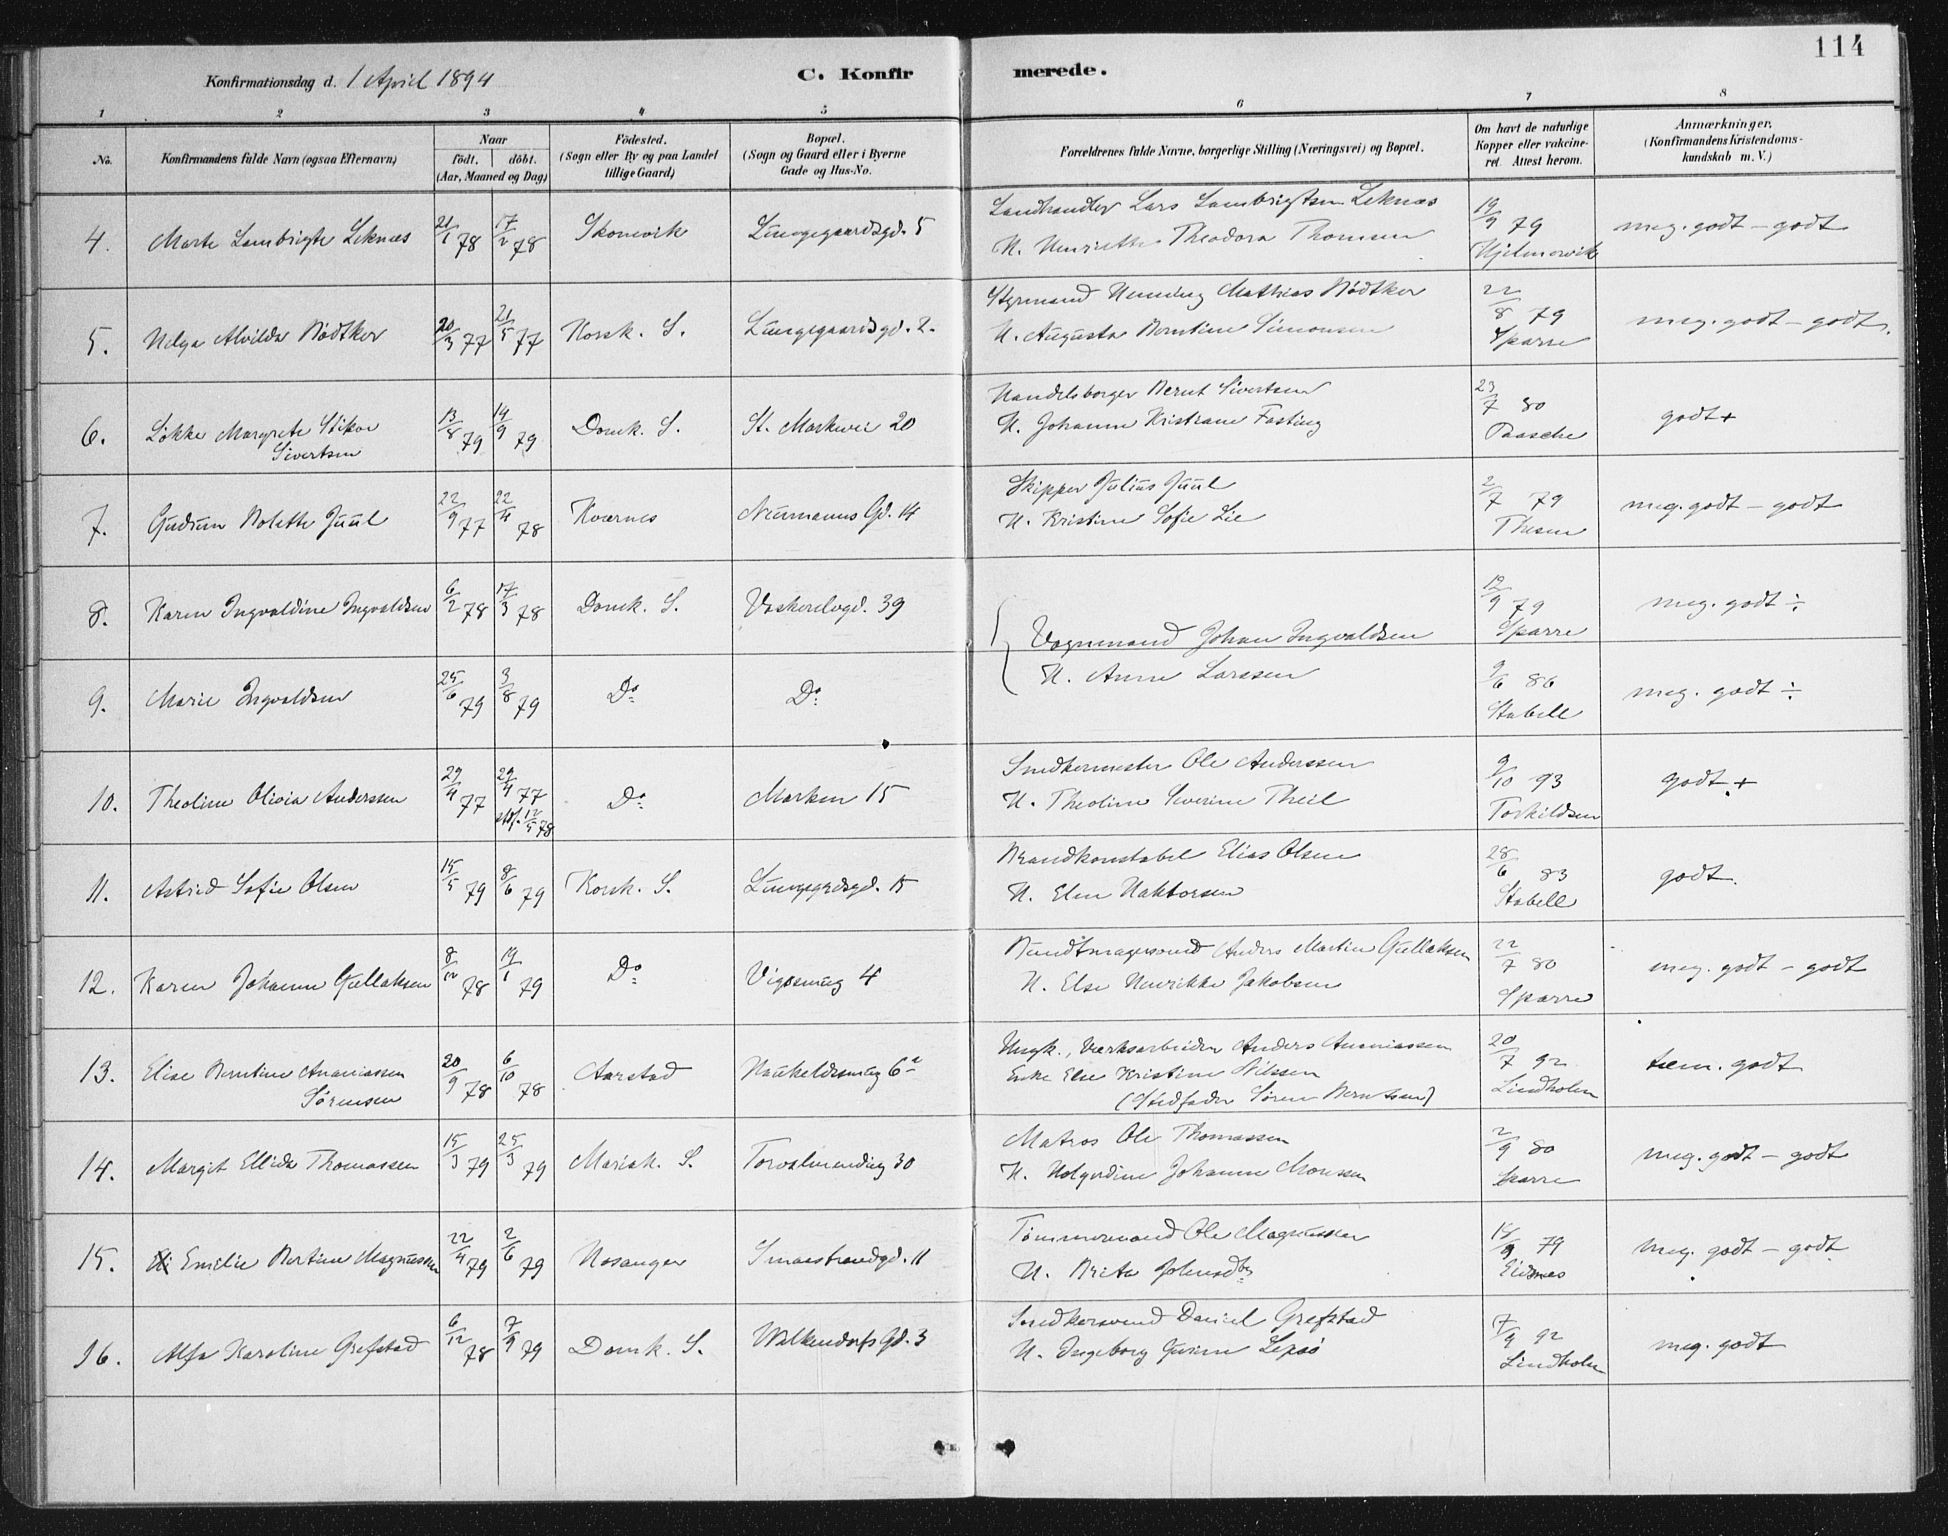 114
Konfirmationsdag d. 1 April 1894
C. Konfirmerede.
1 2 3 4 5 6 7 8
No.
Konfirmandens fulde Navn (ogsaa Efternavn)
Naar
födt. döbt.
(Aar, Maaned og Dag)
Födested.
(Sogn eller By og paa Landet
tillige Gaard)
Bopæl.
(Sogn og Gaard eller i Byerne
Gade og Hus-No.
Forældrenes fulde Navne, borgerlige Stilling (Næringsvei) og Bopæl.
Om havt de naturlige
Kopper eller vakcine-
ret. Attest herom.
Anmærkninger.
(Konfirmandens Kristendoms-
kundskab m. V.)
4. Marte Lambrigte Leknæs 21/1 78 17/2 78 Skonevik Lungegaardsgd. 5
Landhandler Lars Lambrigtsen Leknæs
H. Henriette Theodora Thomsen
19/9 79
Hjelmervik
meg. godt - godt
5. Helga Alvilda Bödtker 20/3 77 21/5 77 Korsk. S. Lungegaardsgd. 2.
Styrmand Henning Mathias Bödtker
H. Augusta Berntine Simonsen
22/8 79
Sparre
meg. godt - godt.
6. Lökke Margrete Stikoe
Sivertsen
13/8 79 14/9 79 Domk. S. St. Markevei 20
Handelsborger Bernt Sivertsen
H. Johanne Kristiane Fasting
23/7 80
Paasche
godt +
7. Gudrun Bolette Juul 22/9 77 22/4 78 Kvernes Neumanns Gd. 14
Skipper Julius Juul
H. Kristine Sofie Lie
2/7 79
Thesen
meg. godt - godt
8. Karen Ingvaldine Ingvaldsen 6/2 78 17/3 78 Domk. S. Vaskerelvgd. 39
Vognmand Johan Ingvaldsen
H. Anne Larssen
12/9 79
Sparre
meg. godt ÷
9. Marie Ingvaldsen 25/6 79 3/8 79 Do Do
9/6 86
Stabell
meg. godt ÷
10. Theoline Olivia Anderssen 29/4 77 29/4 77
stdf. 12/5 78
Do Marken 15
Snedkermester Ole Anderssen
H. Theoline Severine Theil
9/10 93
Torkildsen
godt +
11. Astrid Sofie Olsen 15/5 79 8/6 79 Korsk. S. Lungegrdsgd. 15
Brandkonstabel Elias Olsen
H. Elen Haktorsen
28/6 83
Stabell
godt.
12. Karen Johanne Gullaksen 8/12 78 19/1 79 Do Vigosmug 4
Bundtmagersvend Anders Martin Gullaksen
H. Else Henrikke Jakobsen
22/7 80
Sparre
meg. godt - godt
13. Elise Berntine Ananiassen
Sörensen
20/9 78 6/10 78 Aarstad Haukeldsmug 6a
Ungk., Værksarbeider Anders Ananiassen
Enke Else Kristine Nilssen
(Stedfader Sören Berntsen)
20/7 92
Lindholm
tem. godt
14. Margit Ellida Thomassen 15/3 79 25/3 79 Mariak. S. Torvalmending 30
Matros Ole Thomassen
H. Holgerdine Johanne Monssen
2/9 80
Sparre
meg. godt - godt
15. Emilie Bertine Magnussen 22/4 79 2/6 79 Hosanger Smaastrandgd. 11
Tømmermand Ole Magnussen
H. Brita Johnsdtr
15/9 79
Eidnes
meg. godt - godt
16. Alfa Karoline Grefstad 6/12 78 7/9 79 Domk. S. Walkendorfs Gd. 3
Snedkersvend Daniel Grefstad
H. Ingeborg Gurine Lepsö
17/9 92
Lindholm
meg. godt